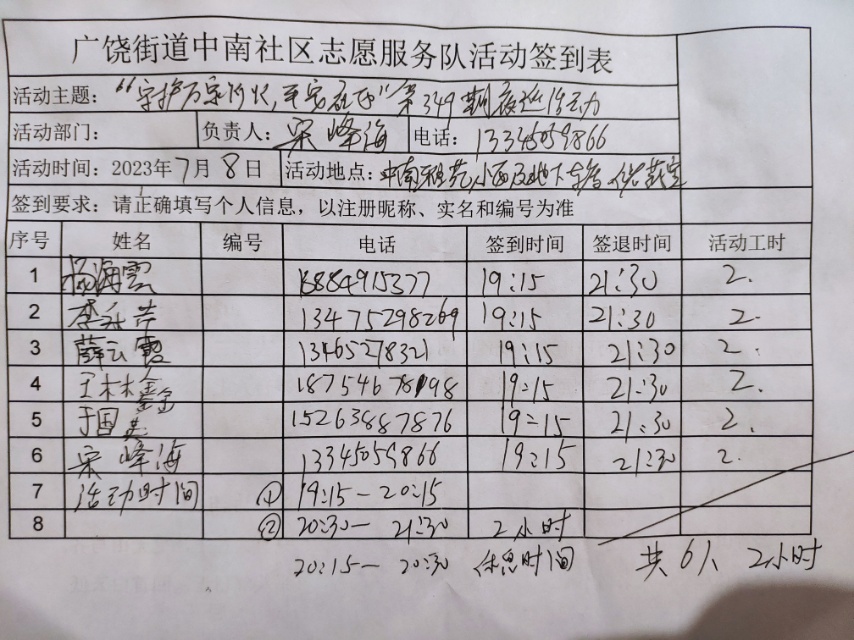 广饶街道中南社区志愿服务队活动签到表
活动主题：“守护万家灯火，平安在我”第349期夜巡活动
活动部门： 负责人：宋峰海 电话：13345059866
活动时间：2023年7月8日 活动地点：中南 小区及地下车
签到要求：请正确填写个人信息，以注册昵称、实名和编号为准
序号 姓名 编号 电话 签到时间 签退时间 活动工时
1 杨海霞 15884915377 19:15 21:30 2.
2 李 13475298269 19:15 21:30 2.
3 薛云霞 13465278321 19:15 21:30 2.
4 王林鑫 18754678198 19:15 21:30 2.
5 于国 15263887876 19:15 21:30 2.
6 宋峰海 13345059866 19:15 21:30 2.
7 活动时间 ① 19:15—20:15
8 ② 20:30—21:30 2小时
20:15—20:30 休息时间 共6人 2小时